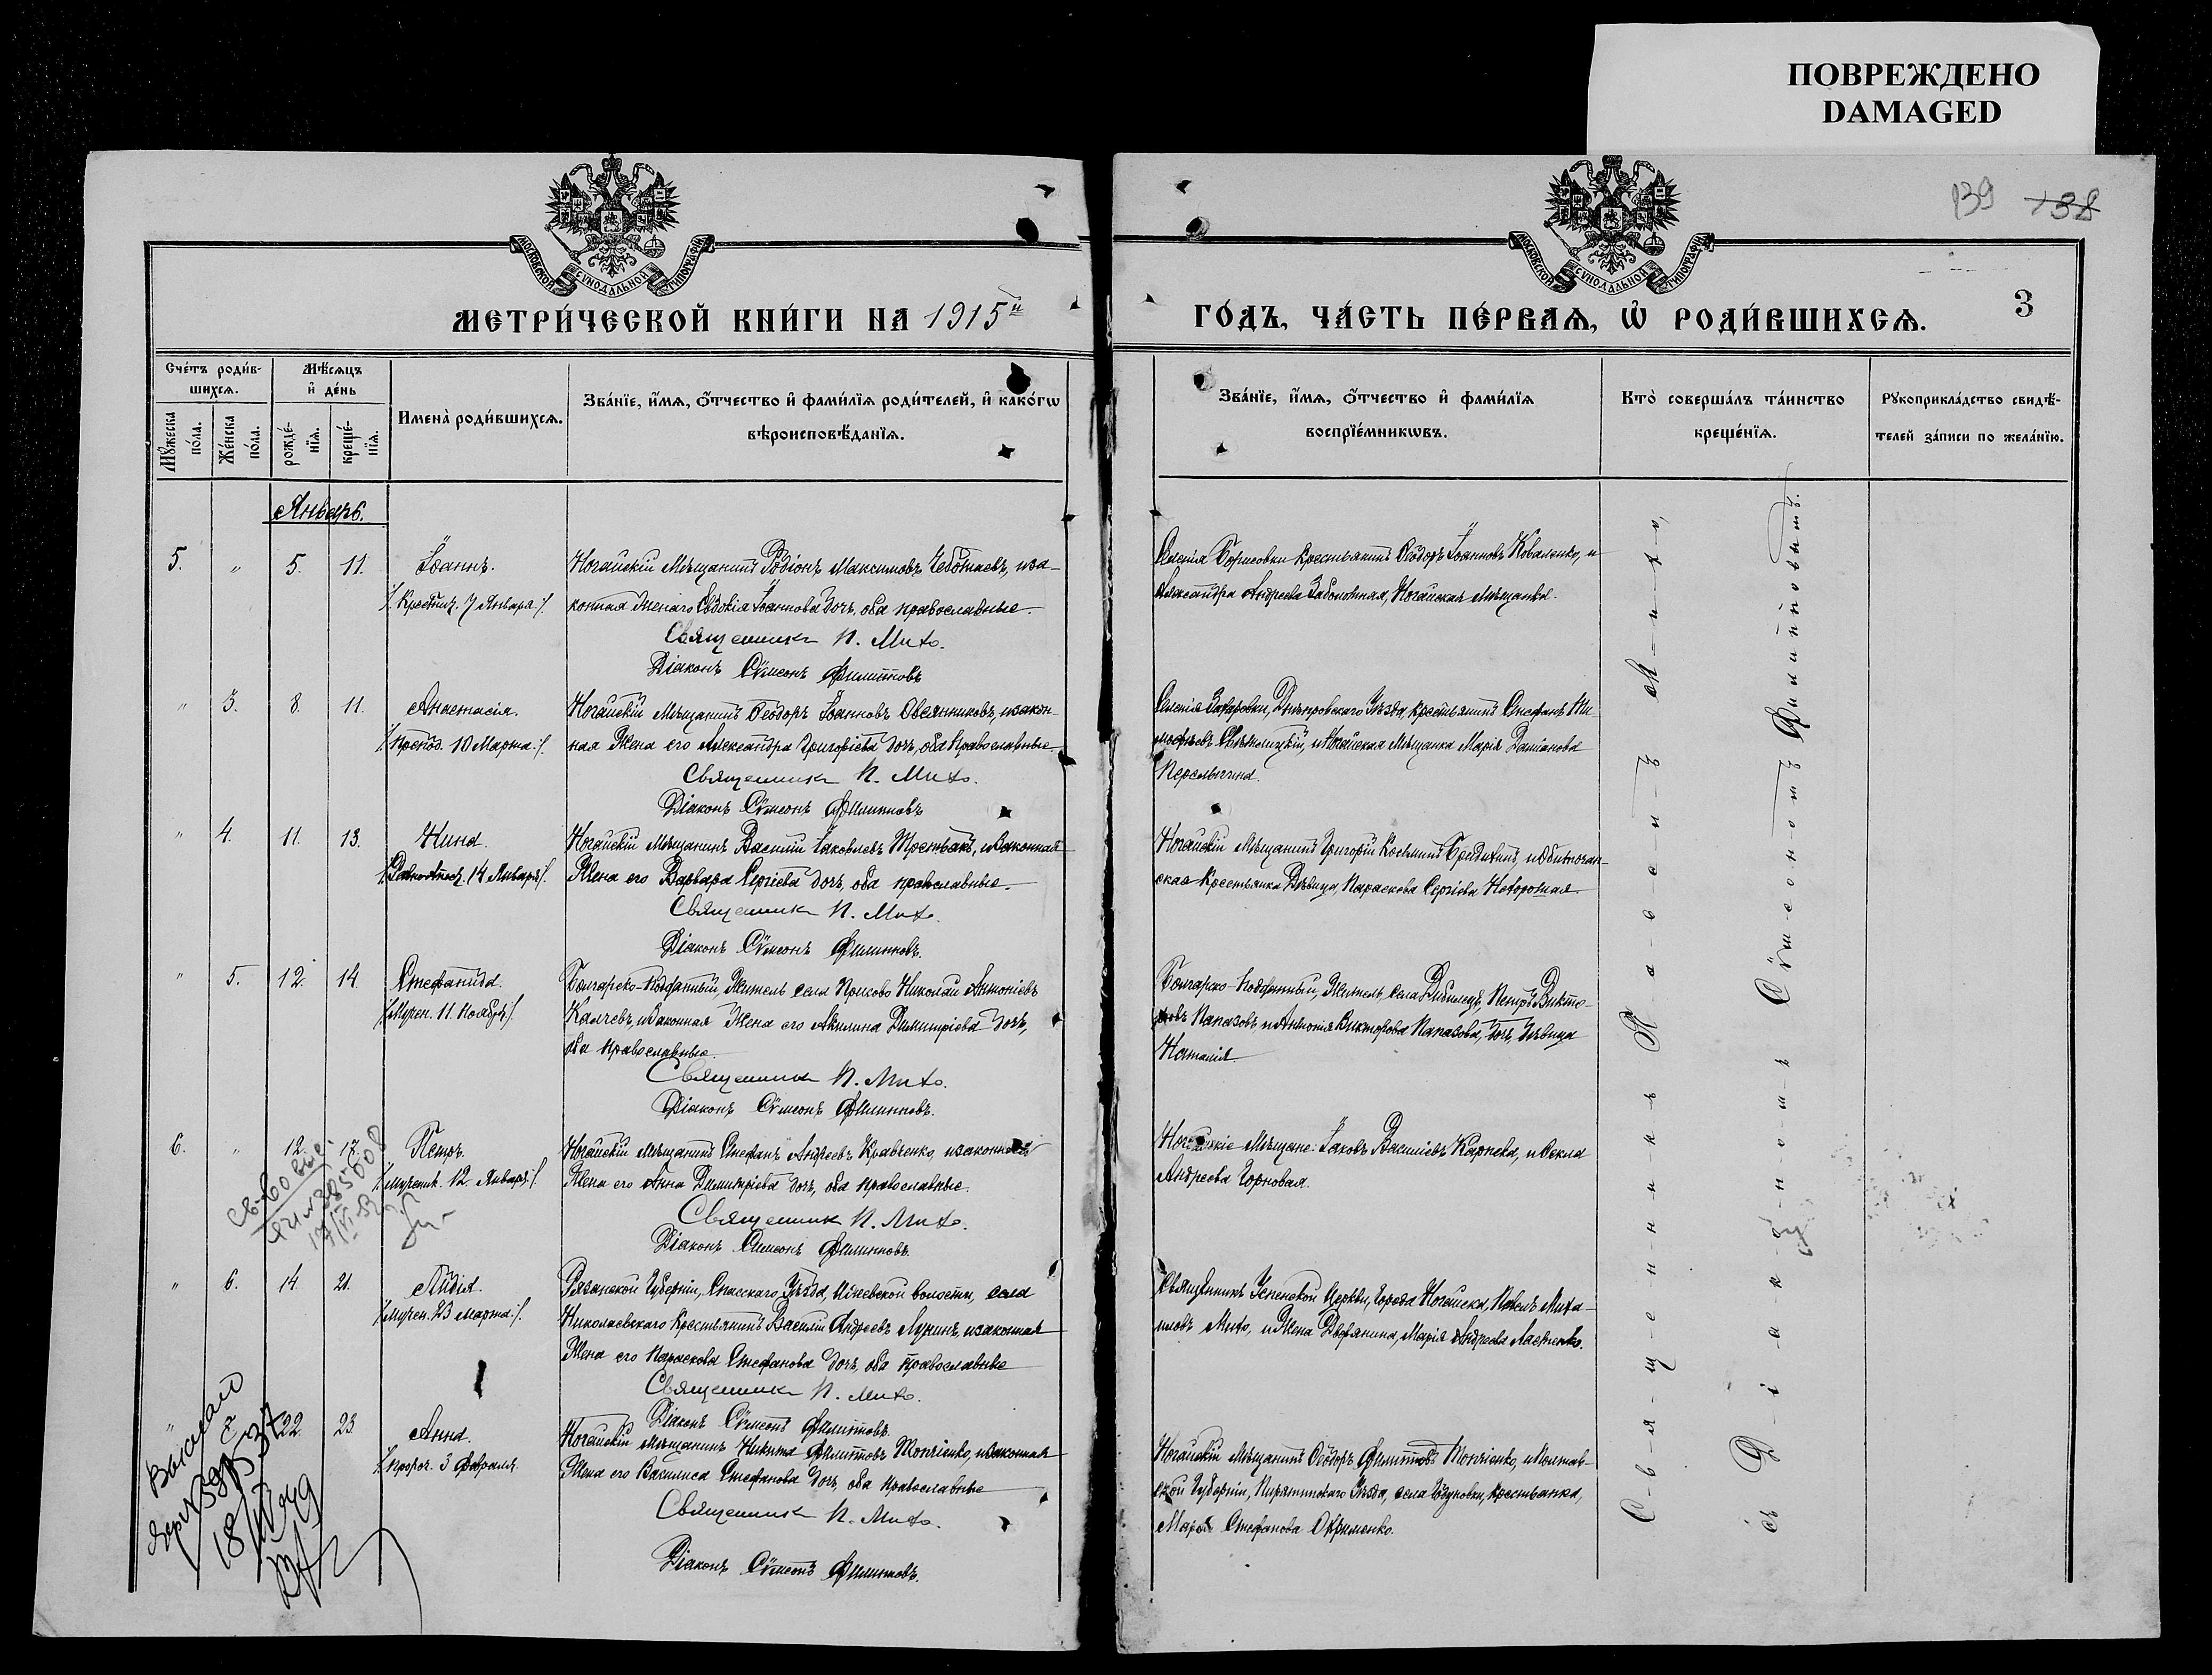 ПОВРЕЖДЕНО
DAMAGED
139 138
МОСКОВСКОЙ СУНОДАЛЬНОЙ ТИПОГРАФІИ
МОСКОВСКОЙ СУНОДАЛЬНОЙ ТИПОГРАФІИ
МЕТРИ́ЧЕСКОЙ КНИ́ГИ НА 1915й
ГО́ДЪ, ЧА́СТЬ ПЕ́РВАѦ, Ѡ҆ РОДИ́ВШИХСѦ.
3
Сче́тъ роди́в-
шихсѧ.
Мꙋ́жеска по́ла.
Же́нска по́ла.
Мѣ́сѧцъ и҆ де́нь
рожде́-нїѧ.
креще́-нїѧ.
Имена̀ роди́вшихсѧ.
Зва́нїе, и҆́мѧ, ѻ҆́тчество и҆ фами́лїѧ роди́телей, и҆ како́гѡ
вѣроисповѣ́данїѧ.
Зва́нїе, и҆́мѧ, ѻ҆́тчество и҆ фами́лїѧ
воспрїе́мникѡвъ.
Кто̀ соверша́лъ та́инство
креще́нїѧ.
Рꙋкоприкла́дство свидѣ́-
телей за́писи по жела́нїю.
Январь.
5. " 5. 11. Іоаннъ.
/. Крестит. 7 Января ./.
Ногайскій Мѣщанинъ Родіонъ Максимовъ Чеботаевъ, и за-
конная жена его Евдокія Іоаннова дочь, оба православные.
Священникъ П. Михо.
Діаконъ Сѵмеонъ Филипповъ
Селенія Борисовки крестьянинъ Ѳеодоръ Іоанновъ Коваленко, и
Александра Андреева Заболотная, Ногайская мѣщанка.
" 3. 8. 11. Анастасія.
/. Препод. 10 Марта ./.
Ногайскій мѣщанинъ Ѳеодоръ Іоанновъ Овсянниковъ, и закон-
ная Жена его Александра Григоріева дочь, оба Православные.
Священникъ П. Михо.
Діаконъ Сѵмеонъ Филипповъ
Селенія Захаровки, Днѣпровскаго Уѣзда, крестьянинъ Стефанъ Ти-
и Ногайская Мѣщанка Марія Даміанова
" 4. 11. 13. Нина.
/. Равноапост. 14 Января ./.
Ногайскій Мѣщанинъ Василій Іаковлевъ Третьякъ, и законная
Жена его Варвара Сергіева дочь, оба православные.
Священникъ П. Михо.
Діаконъ Сѵмеонъ Филипповъ.
Ногайскій Мѣщанинъ Григорій Косьминъ Бредихинъ, и Обиточан-
ская крестьянка Дѣвица, Параскева Сергіева Новорожная
" 5. 12. 14. Стефанида.
/. Мучен. 11 Ноября ./.
Болгарско-Подданный, Житель села Присово Николай Антоніевъ
Калчевъ, и законная Жена его Акилина Димитріева дочь,
оба православные.
Священникъ П. Михо.
Діаконъ Сѵмеонъ Филипповъ.
Болгарско-Подданный, Житель села Дебилецъ, Петръ Викто-
ровъ Папазовъ, и Антонія Викторова Папазова, дочь, дѣвица
Наталія.
6. " 12. 17. Петръ.
/. мученик. 12 Января ./.
Ногайскій мѣщанинъ Стефанъ Андреевъ Кравченко, и законная
Жена его Анна Димитріева дочь, оба православные.
Священникъ П. Михо.
Діаконъ Сѵмеонъ Филипповъ.
Ногайскіе Мѣщане: Іаковъ Василіевъ Карнева, и Ѳекла
Андреева Горновая.
" 6. 14. 21. Лидія.
/. Мучен. 23 Марта ./.
Рязанской Губерніи, Спасскаго Уѣзда, Ижевской волости, села
Николаевскаго Крестьянинъ Василій Андреевъ Лунинъ, и законная
Жена его Параскева Стефанова дочь, оба православные
Священникъ П. Михо.
Діаконъ Сѵмеонъ Филипповъ.
Священникъ Успенской Церкви, Города Ногайска, Павелъ Миха-
иловъ Михо, и Жена Дворянина, Марія Андреева
" 22. 23. Анна.
/. пророч. 3 Февраля.
Ногайскій мѣщанинъ Никита Филипповъ Топчіенко, и законная
Жена его Василиса Стефанова дочь, оба православные
Священникъ П. Михо.
Діаконъ Сѵмеонъ Филипповъ.
Ногайскій мѣщанинъ Ѳеодоръ Филипповъ Топчіенко, и Полтав-
ской Губерніи, Пирятинскаго Уѣзда, села крестьянка,
Марія Стефанова Охрименко.
С-в-я-щ-е-н-н-и-к-ъ П-а-в-е-л-ъ М-и-х-о,
съ Д-і-а-к-о-н-о-м-ъ Сѵ-м-е-о-н-о-м-ъ Ф-и-л-и-п-п-о-в-ы-м-ъ.